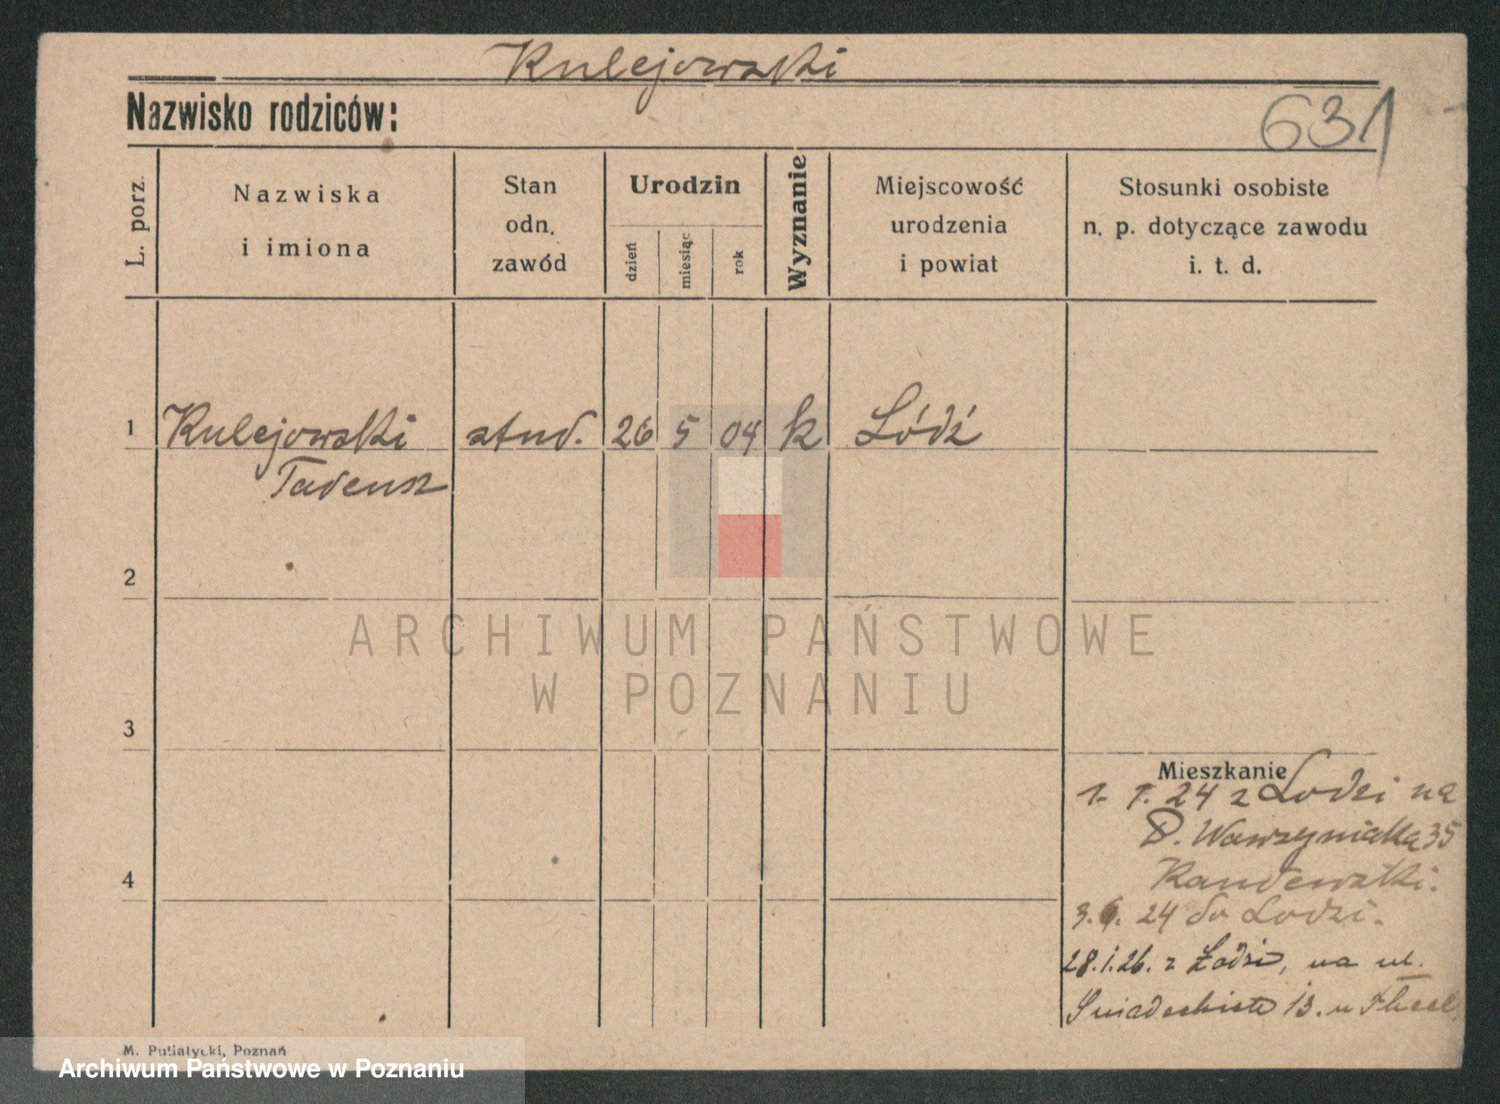 Kulejowski
Nazwisko rodziców:
631
L. porz.
Nazwiska
i imiona
Stan
odn.
zawód
Urodzin
dzień
miesiąc
rok
Wyznanie
Miejscowość
urodzenia
i powiat
Stosunki osobiste
n. p. dotyczące zawodu
i. t. d.
1 Kulejowski stud. 26 5 04 k Łódź
Tadeusz
2
ARCHIWUM PAŃSTWOWE
W POZNANIU
3
Mieszkanie
24 z Łodzi na
D. Wawrzyniaka 35
4
24 do Łodzi.
28.1.26. z Łodzi, na ul.
13. u
M. Putiatycki, Poznań
Archiwum Państwowe w Poznaniu